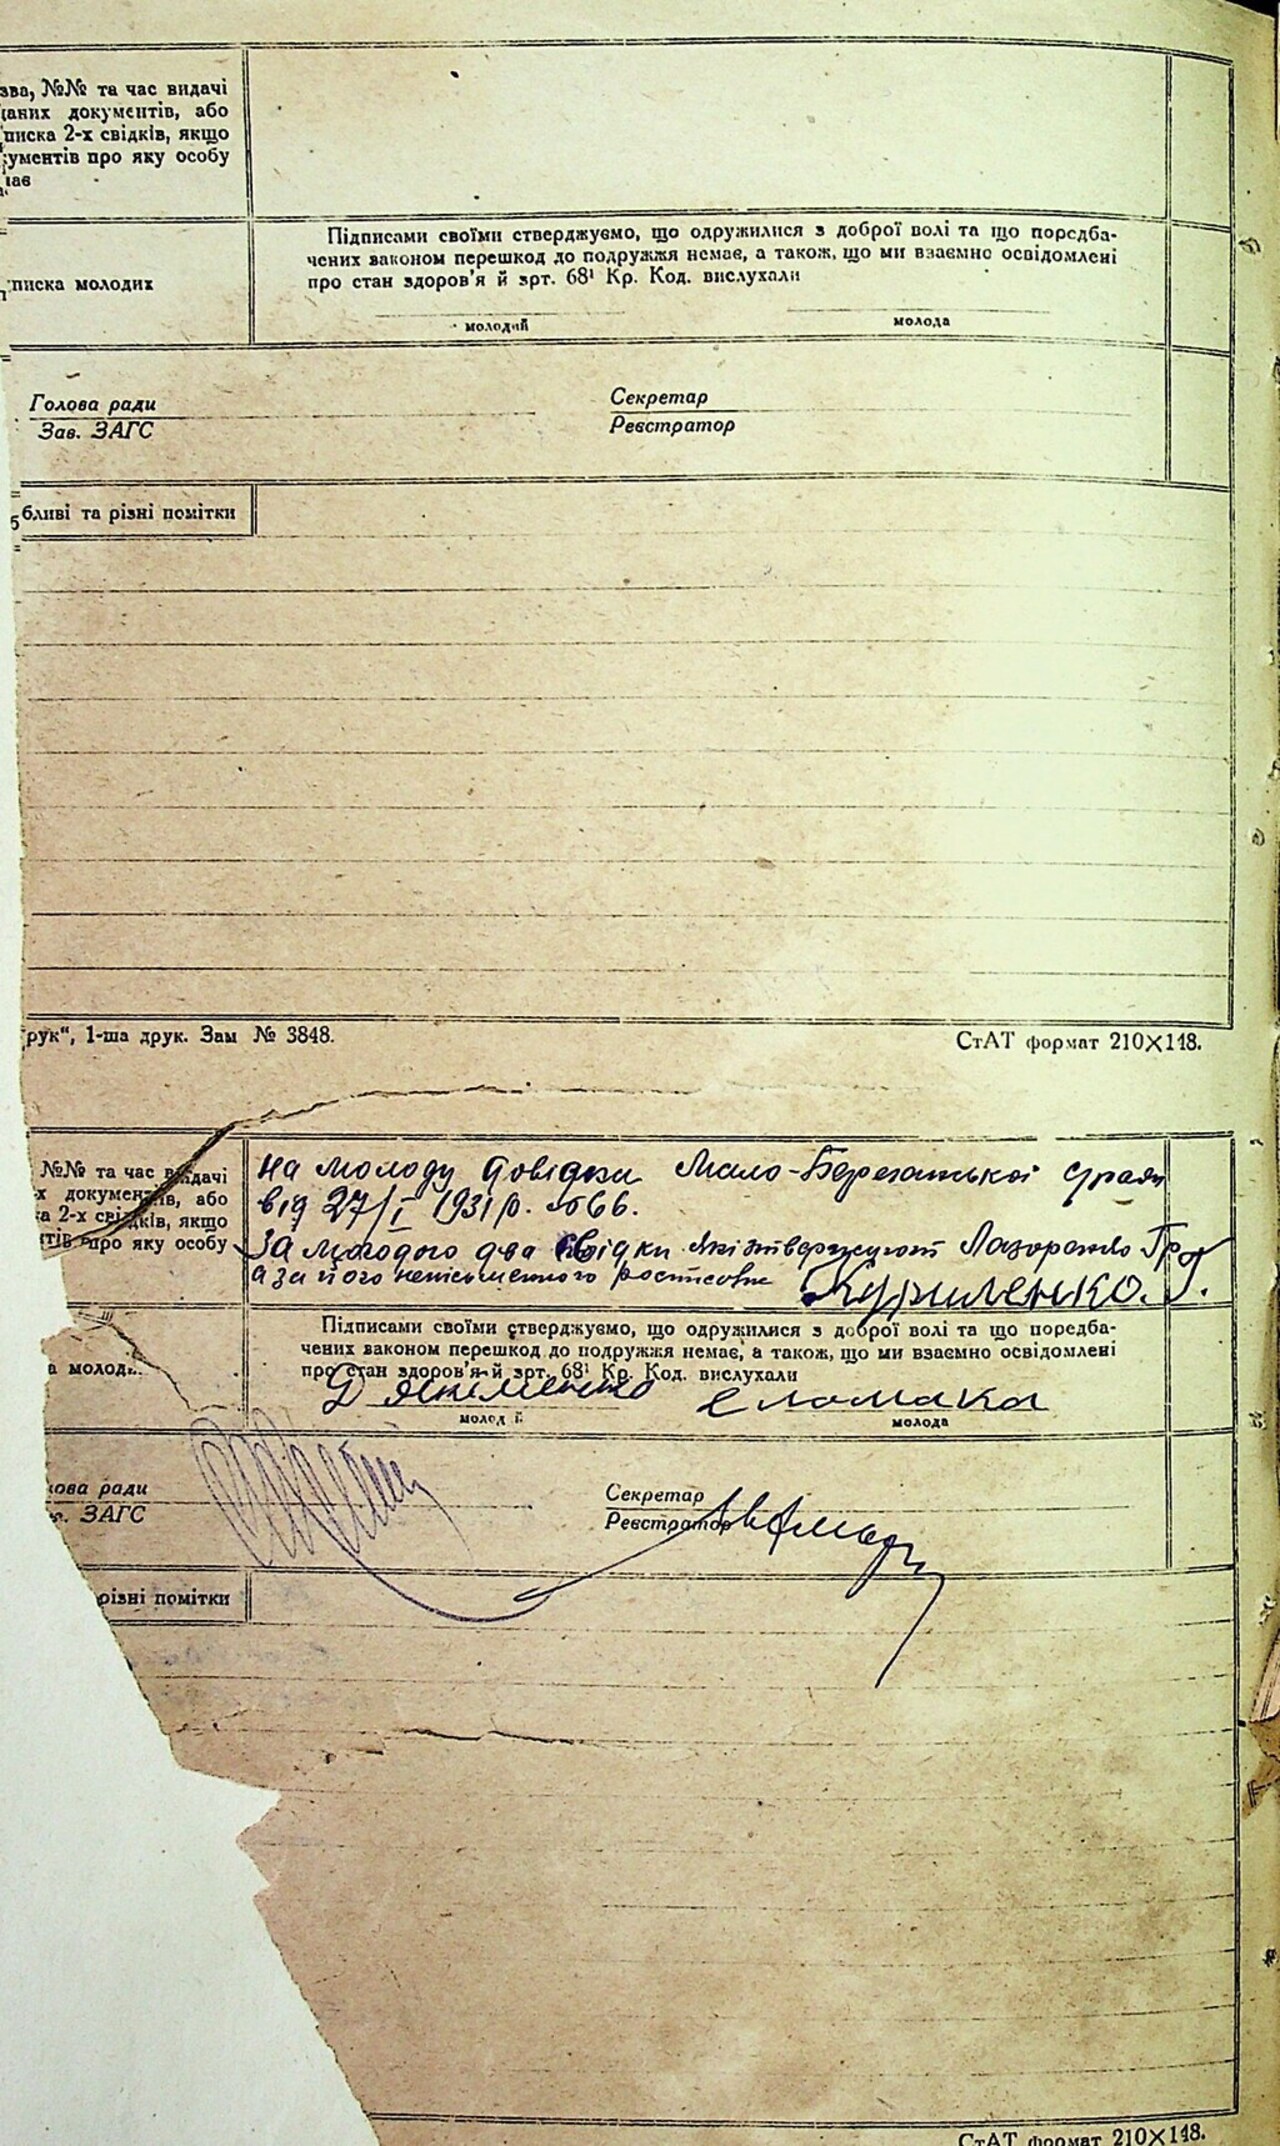 зва, №№ та час видачі
даних документів, або
писка 2-х свідків, якщо
кументів про яку особу
має
писка молодих
Підписами своїми стверджуємо, що одружилися з доброї волі та що передба-
чених законом перешкод до подружжя немає, а також, що ми взаємно освідомлені
про стан здоров'я й зрт. 68¹ Кр. Код. вислухали
молодий молода
Голова ради Секретар
Зав. ЗАГС Реєстратор
бливі та різні помітки
рук“, 1-ша друк. Зам № 3848. СтАТ формат 210×148.
№№ та час видачі
х документів, або
а 2-х свідків, якщо
тів про яку особу
На молоду довідка Мало-Березанської
від 27/I 1931 р. №66.
За молодого два свідки які стверджують Лазоренко Гр
а за його неписьменного ростсовне Куриленко. Г.
Підписами своїми стверджуємо, що одружилися з доброї волі та що передба-
чених законом перешкод до подружжя немає, а також, що ми взаємно освідомлені
про стан здоров'я й зрт. 68¹ Кр. Код. вислухали
Д Якименко Є Ломака
молодий молода
а молоди
ова ради Секретар
в. ЗАГС Реєстратор
різні помітки
СтАТ формат 210×148.